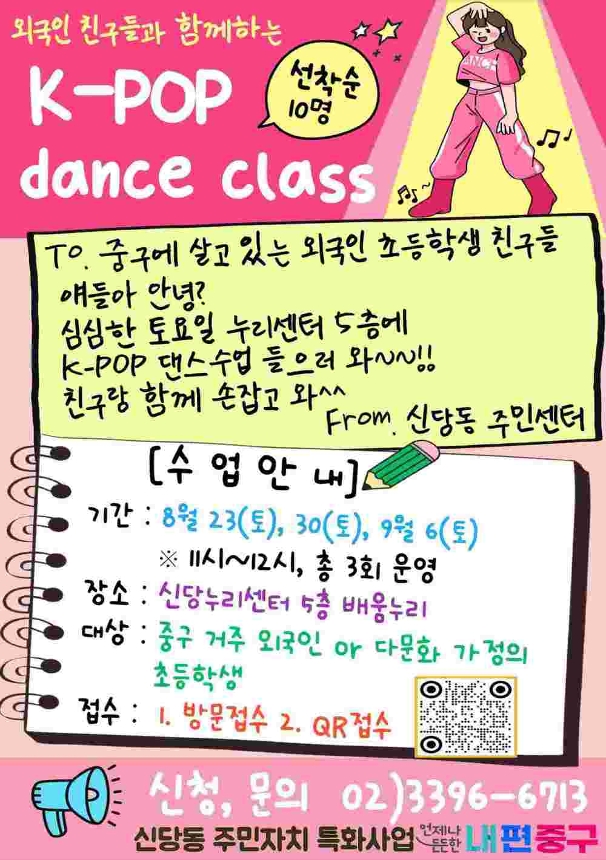 외국인 친구들과 함께하는
K-POP
dance class
선착순
10명
DANCE
TO. 중구에 살고 있는 외국인 초등학생 친구들
얘들아 안녕?
심심한 토요일 누리센터 5층에
K-POP 댄스수업 들으러 와~~!!
친구랑 함께 손잡고 와^^
From. 신당동 주민센터
[수 업 안 내]
기간 : 8월 23(토), 30(토), 9월 6(토)
※ 11시~12시, 총 3회 운영
장소 : 신당누리센터 5층 배움누리
대상 : 중구 거주 외국인 or 다문화 가정의
초등학생
접수 : 1. 방문접수 2. QR접수
신청, 문의 02)3396-6713
신당동 주민자치 특화사업 언제나 든든한 내편중구